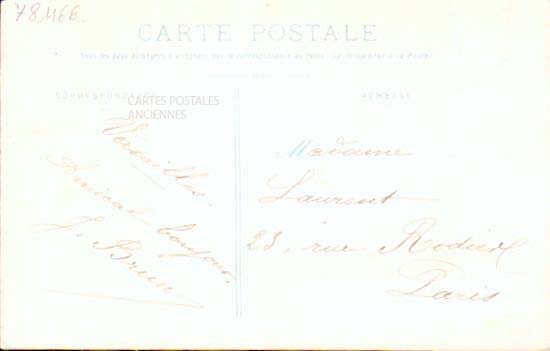 78466.
CARTE POSTALE
Tous les pays étrangers n'acceptent pas la correspondance au recto. (Se renseigner à la Poste)
CORRESPONDANCE
CARTES POSTALES
ANCIENNES
ADRESSE
Versailles.
Amical bonjour.
J. Brun
Madame
Laurent
23, rue
Paris